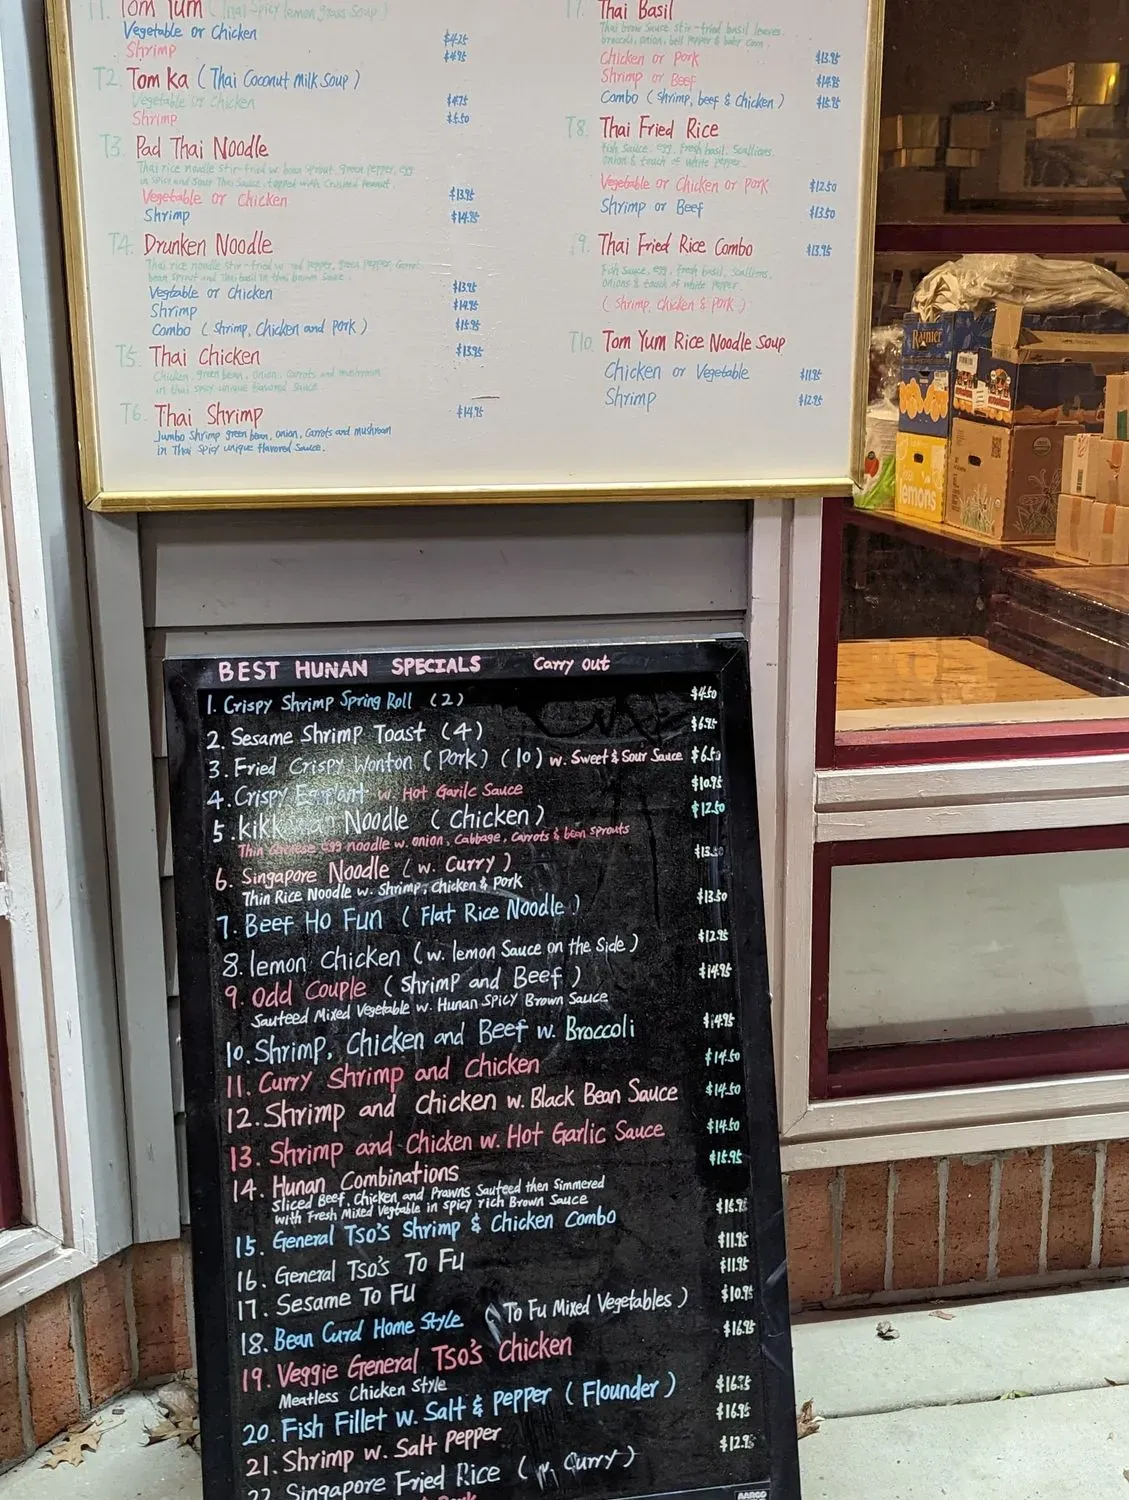 T1. Tom Yum (Thai Spicy lemon grass Soup)
Vegetable or Chicken $4.25
Shrimp $4.95
T2. Tom Ka (Thai Coconut Milk Soup)
Vegetable or Chicken $4.75
Shrimp $5.50
T3. Pad Thai Noodle
Thai rice noodle stir-fried w. bean sprout, green pepper, egg
in spicy and sour Thai Sauce, topped with crushed peanut.
Vegetable or Chicken $13.95
Shrimp $14.95
T4. Drunken Noodle
Thai rice noodle stir-fried w. red pepper, green pepper, carrot
bean sprout and Thai basil in thai brown sauce.
Vegtable or Chicken $13.95
Shrimp $14.95
Combo (Shrimp, Chicken and Pork) $15.95
T5. Thai Chicken $13.95
Chicken, green bean, onion, carrots and mushroom
in thai spicy unique flavored sauce.
T6. Thai Shrimp $14.95
Jumbo Shrimp green bean, onion, carrots and mushroom
in Thai spicy unique flavored sauce.
Thai Basil
Thai brown sauce stir-fried basil leaves,
broccoli, onion, bell pepper & baby corn.
Chicken or Pork $13.95
Shrimp or Beef $14.95
Combo (Shrimp, beef & Chicken) $15.95
T8. Thai Fried Rice
Fish Sauce, egg, fresh basil, Scallions,
onion & touch of white pepper.
Vegetable or Chicken or pork $12.50
Shrimp or Beef $13.50
9. Thai Fried Rice Combo $13.95
Fish Sauce, egg, fresh basil, Scallions,
onions & touch of white pepper.
(Shrimp, Chicken & Pork)
T10. Tom Yum Rice Noodle Soup
Chicken or Vegetable $11.95
Shrimp $12.95
Rainier
lemons
BEST HUNAN SPECIALS Carry out
1. Crispy Shrimp Spring Roll (2) $4.50
2. Sesame Shrimp Toast (4) $6.95
3. Fried Crispy Wonton (Pork) (10) w. Sweet & Sour Sauce $6.50
4. Crispy Eggplant w. Hot Garilc Sauce $10.95
5. Noodle (Chicken) $12.50
Thin Chinese Egg noodle w. onion, Cabbage, Carrots & bean sprouts
6. Singapore Noodle (w. Curry) $13.50
Thin Rice Noodle w. Shrimp, Chicken & Pork
7. Beef Ho Fun (Flat Rice Noodle) $13.50
8. lemon Chicken (w. lemon Sauce on the Side) $12.95
9. Odd Couple (Shrimp and Beef) $14.95
Sauteed Mixed Vegetable w. Hunan Spicy Brown Sauce
10. Shrimp, Chicken and Beef w. Broccoli $14.95
11. Curry Shrimp and Chicken $14.50
12. Shrimp and Chicken w. Black Bean Sauce $14.50
13. Shrimp and Chicken w. Hot Garlic Sauce $14.50
14. Hunan Combinations $15.95
Sliced Beef, Chicken, and Prawns Sauteed then Simmered
with Fresh Mixed Vegtable in spicy rich Brown Sauce
15. General Tso's Shrimp & Chicken Combo $15.95
16. General Tso's To Fu $11.95
17. Sesame To Fu $11.95
18. Bean Curd Home Style (To Fu Mixed Vegetables) $10.95
19. Veggie General Tso's Chicken $16.95
Meatless Chicken Style
20. Fish Fillet w. Salt & Pepper (Flounder) $16.95
21. Shrimp w. Salt Pepper $16.95
22. Singapore Fried Rice (w. Curry) $12.95
Pork